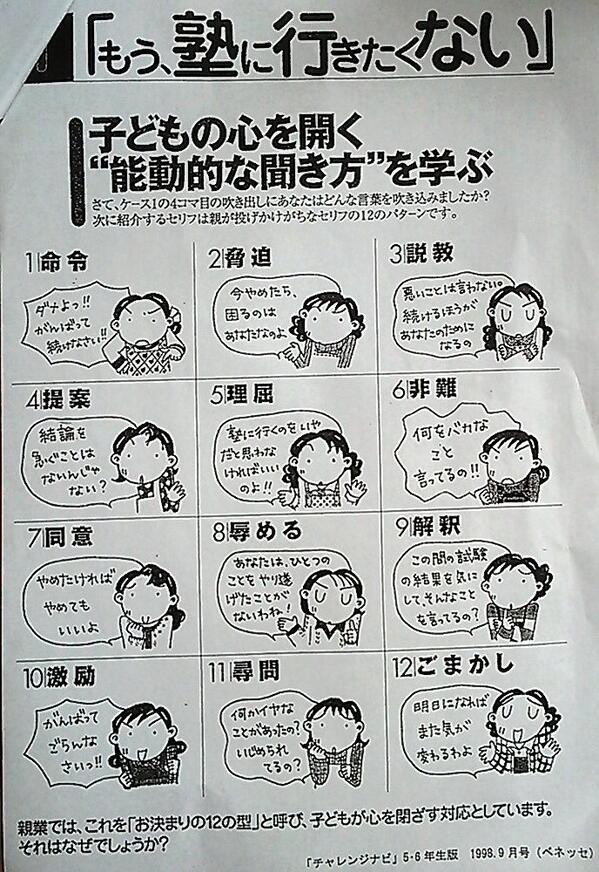 「もう、塾に行きたくない」
子どもの心を開く
“能動的な聞き方”を学ぶ
さて、ケース1の4コマ目の吹き出しにあなたはどんな言葉を吹き込みましたか?
次に紹介するセリフは親が投げかけがちなセリフの12のパターンです。
1 命令
ダメよっ!!
がんばって
続けなさい!!
2 脅迫
今やめたら、
困るのは
あなたなのよ
3 説教
悪いことは言わない。
続けるほうが
あなたのために
なるの
4 提案
結論を
急ぐことは
ないんじゃ
ない?
5 理屈
塾に行くのをいや
だと思わな
ければいい
のよ!!
6 非難
何をバカな
こと
言ってるの!!
7 同意
やめたければ
やめても
いいよ
8 辱める
あなたは、ひとつの
ことをやり遂
げたことが
ないわね!
9 解釈
この間の試験
の結果を気に
して、そんなこと
を言ってるの?
10 激励
がんばって
ごらんな
さいっ!!
11 尋問
何かイヤな
ことがあったの?
いじめられ
てるの?
12 ごまかし
明日になれば
また気が
変わるわよ
親業では、これを「お決まりの12の型」と呼び、子どもが心を閉ざす対応としています。
それはなぜでしょうか?
「チャレンジナビ」5・6年生版 1998.9月号(ベネッセ)